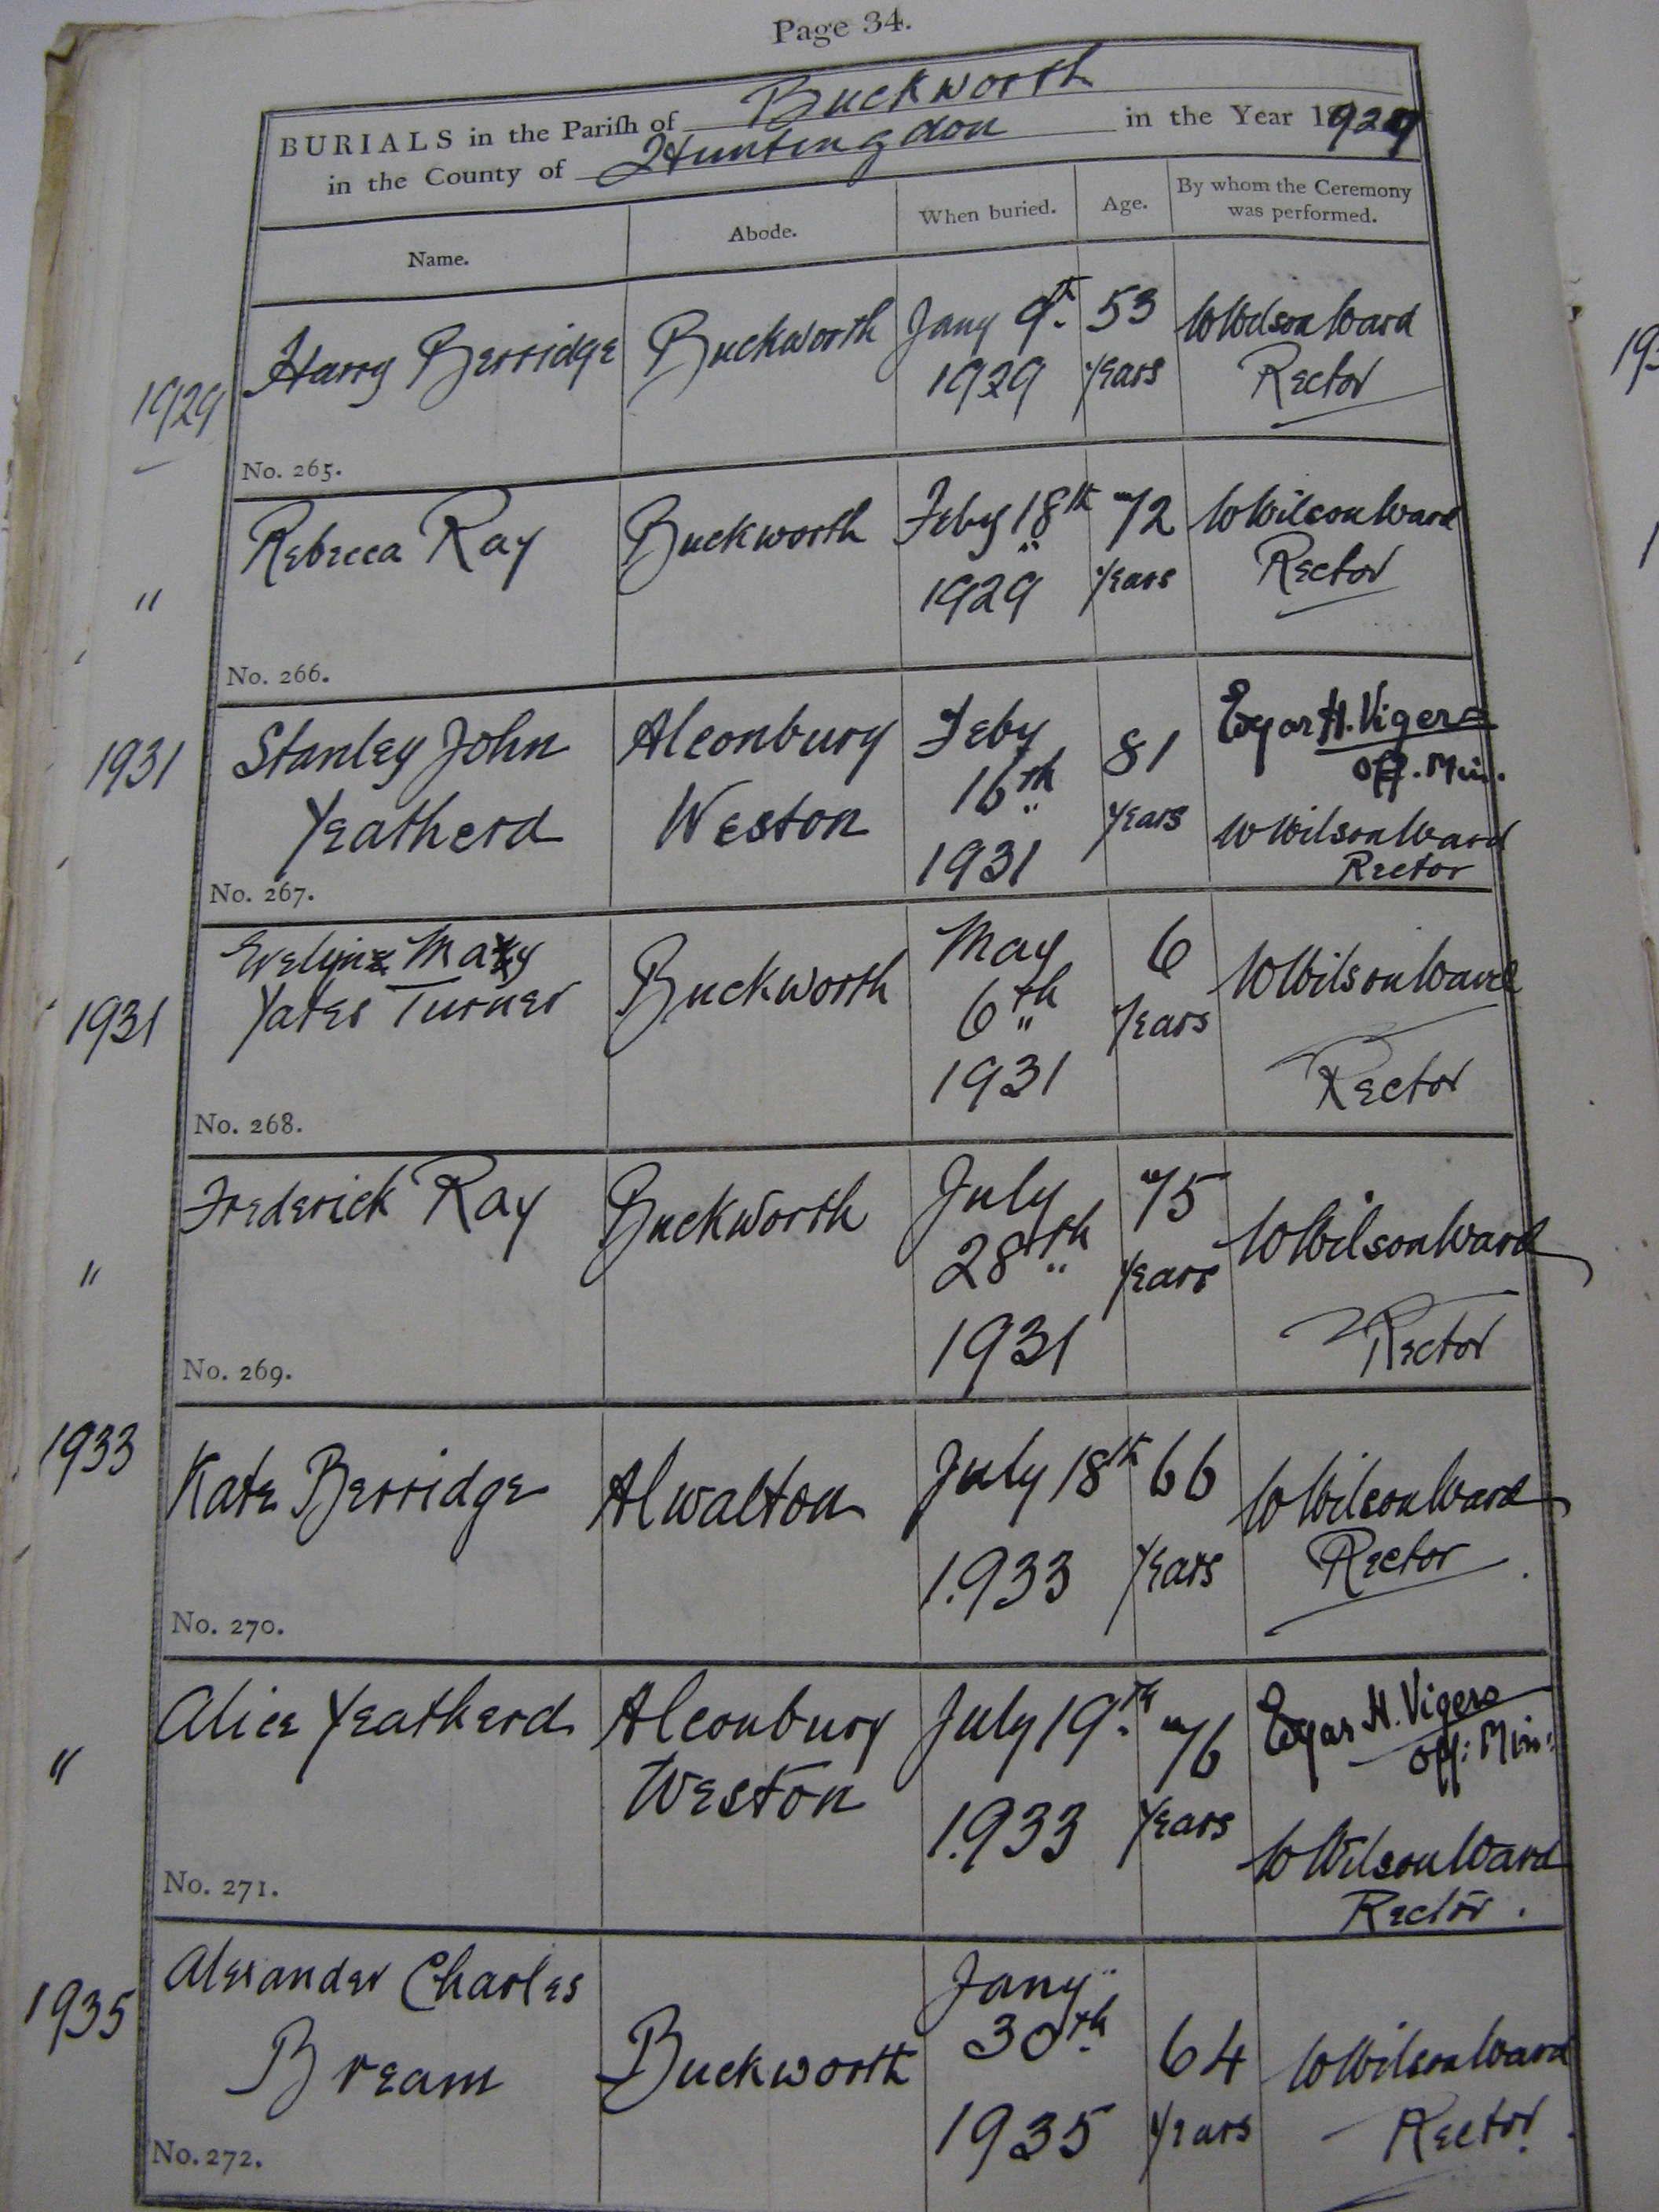 Page 34.
BURIALS in the Pariſh of Buckworth
in the County of Huntingdon in the Year 1929
Name. Abode. When buried. Age. By whom the Ceremony was performed.
1929
Harry Berridge
No. 265.
Buckworth
Jany 9th
1929
53
years
W Wilson Ward
Rector
"
Rebecca Ray
No. 266.
Buckworth
Feby 18th
1929
72
years
W Wilson Ward
Rector
1931
Stanley John
Yeatherd
No. 267.
Alconbury
Weston
Feby
16th
1931
81
years
Edgar H. Vigers
Off. Min.
W Wilson Ward
Rector
1931
Mary
Yates Turner
No. 268.
Buckworth
May
6th
1931
6
years
W Wilson Ward
Rector
"
Frederick Ray
No. 269.
Buckworth
July
28th
1931
75
years
W Wilson Ward
Rector
1933
Kate Berridge
No. 270.
Alwalton
July 18th
1.933
66
years
W Wilson Ward
Rector
"
Alice Yeatherd
No. 271.
Alconbury
Weston
July 19th
1.933
76
years
Edgar H. Vigers
Off: Min:
W Wilson Ward
Rector.
1935
Alexander Charles
Bream
No. 272.
Buckworth
Jany
30th
1935
64
years
W Wilson Ward
Rector.